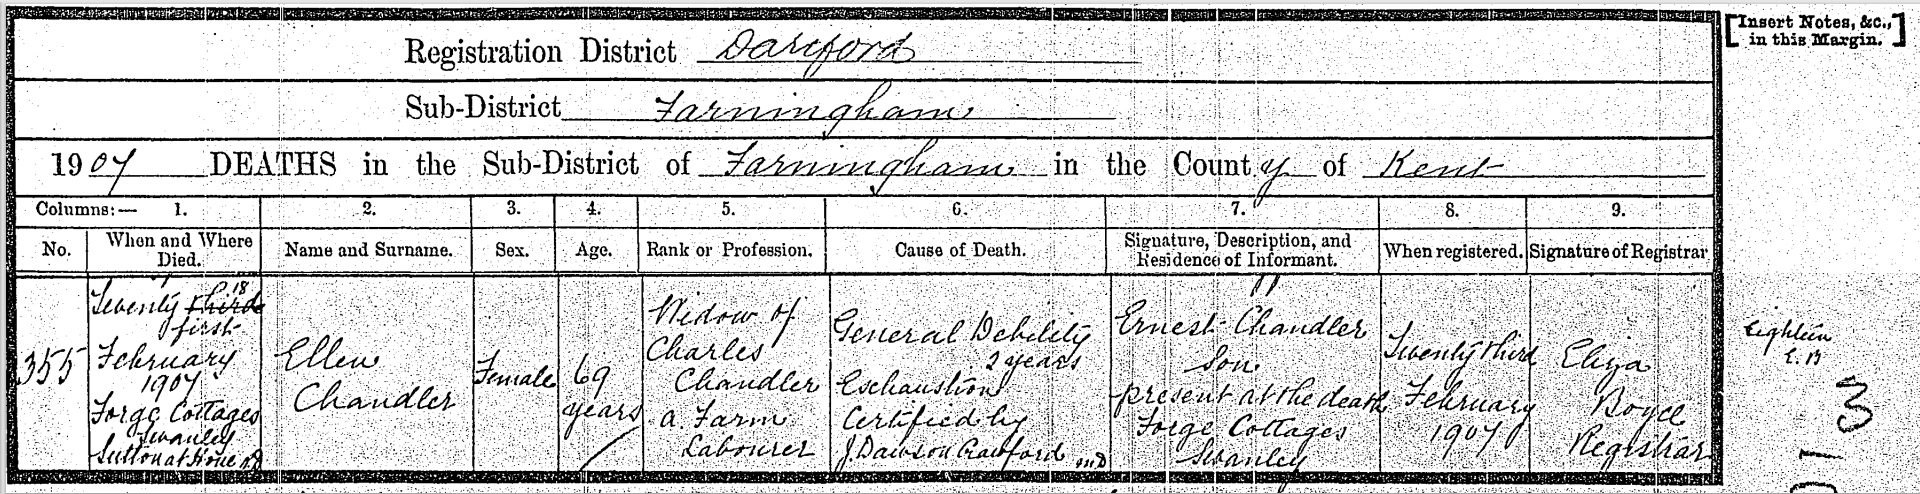 [Insert Notes, &c.,
in this Margin.]
Registration District Dartford
Sub-District Farningham
1907 DEATHS in the Sub-District of Farningham in the County of Kent
Columns:— 1. 2. 3. 4. 5. 6. 7. 8. 9.
No. When and Where Died. Name and Surname. Sex. Age. Rank or Profession. Cause of Death. Signature, Description, and Residence of Informant. When registered. Signature of Registrar
355
18
Twenty third
first
February
1907
Forge Cottages
Swanley
Sutton at Hone RD
Ellen
Chandler
Female
69
years
Widow of
Charles
Chandler
a Farm
Labourer
General Debility
2 years
Exchaustion
Certified by
J. Dawson Crawford MD
Ernest Chandler
Son
present at the death
Forge Cottages
Swanley
Twenty third
February
1907
Eliza
Boyce
Registrar
Eighteen
E. B
3
1